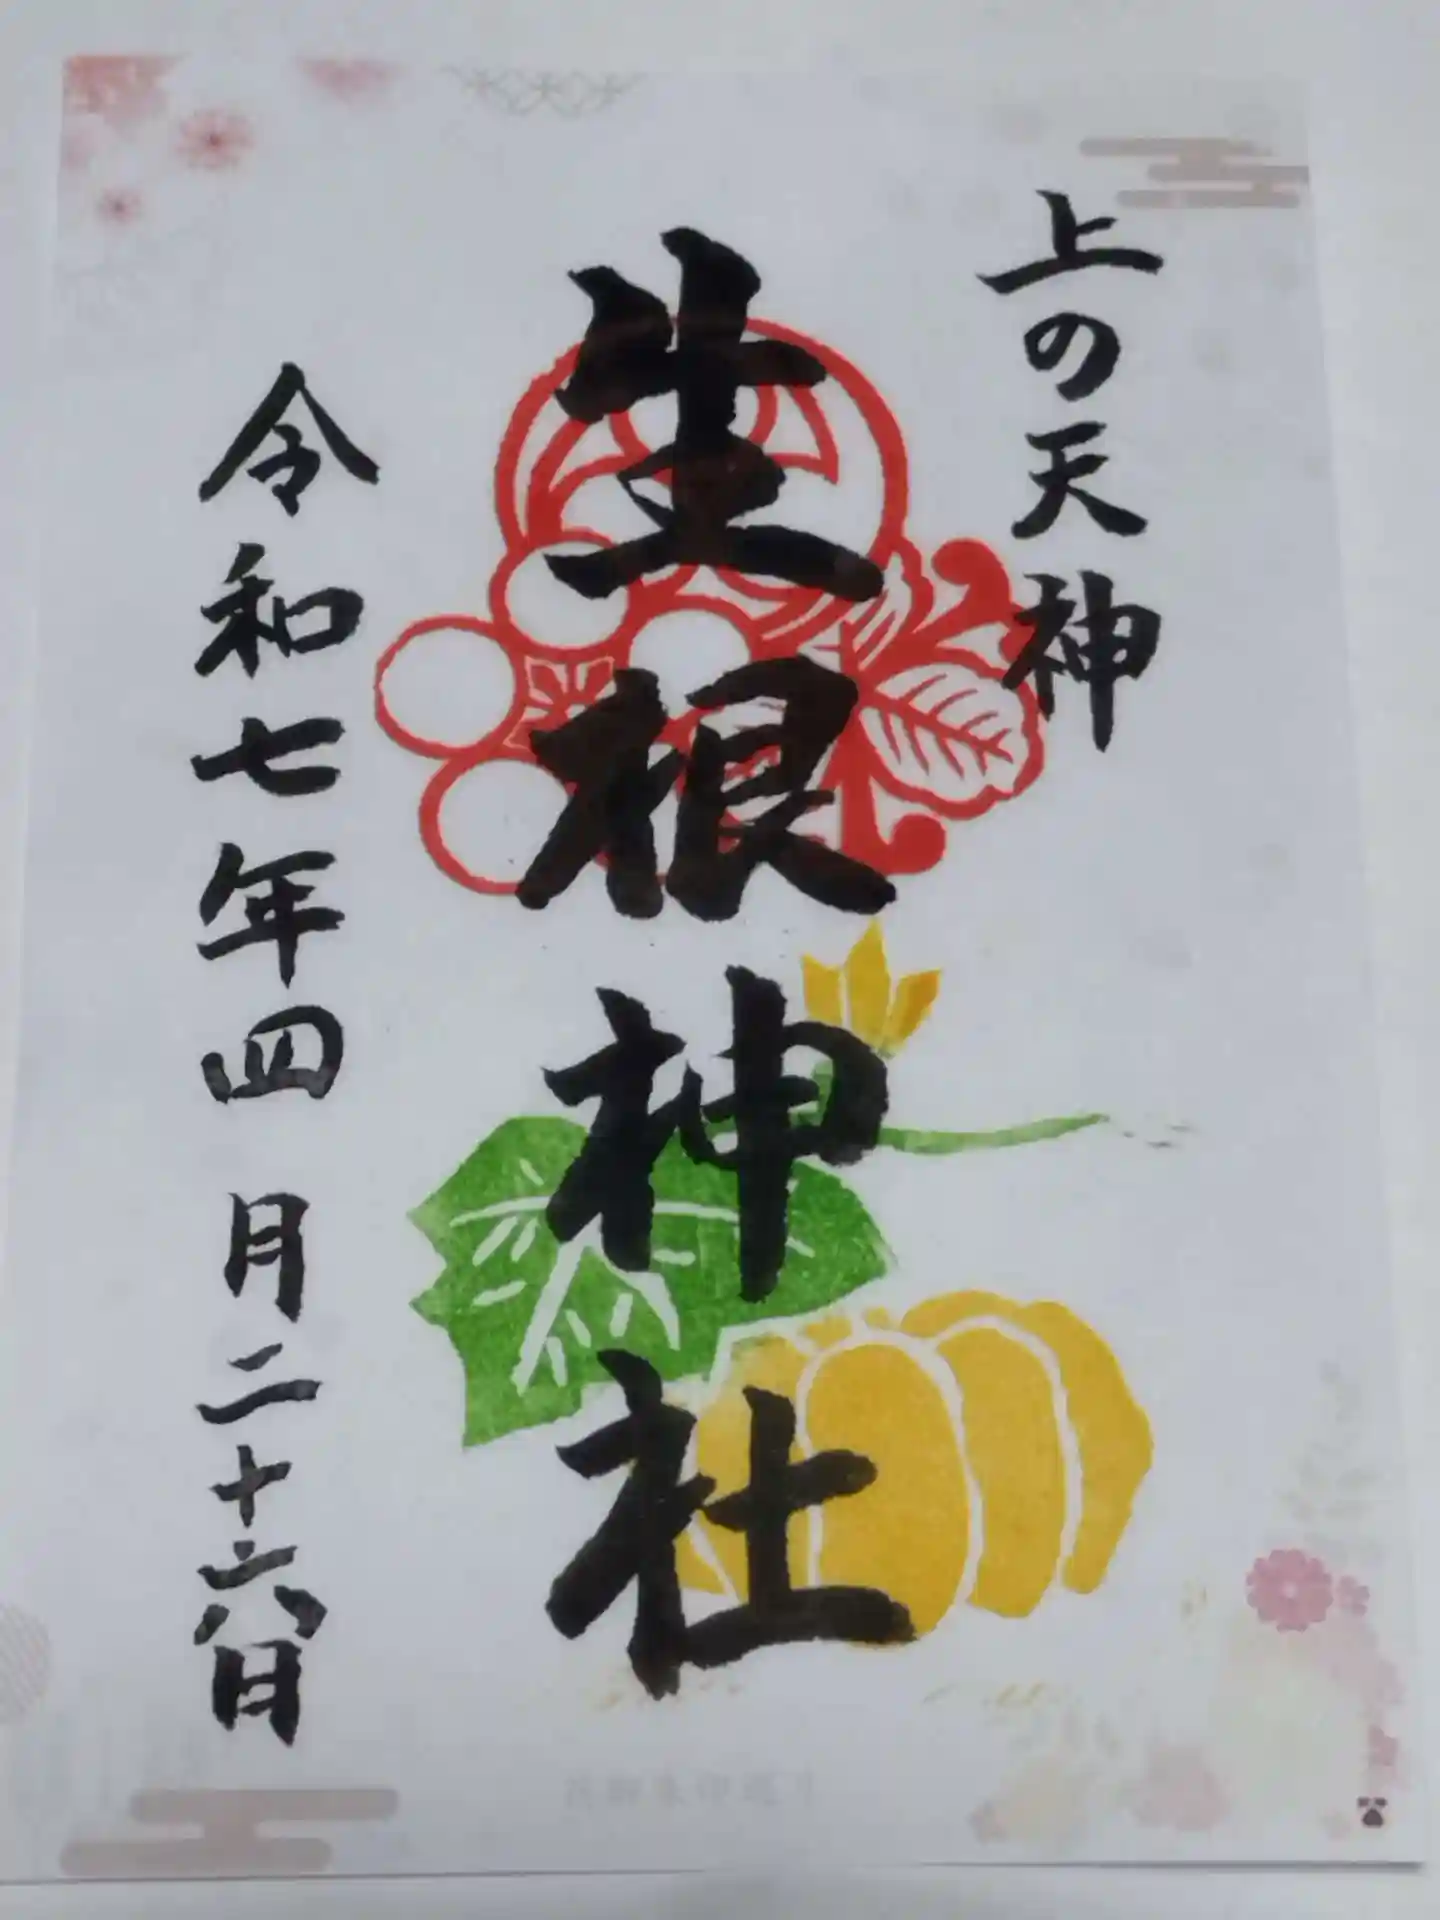 上の天神
生根神社
令和七年四月二十六日